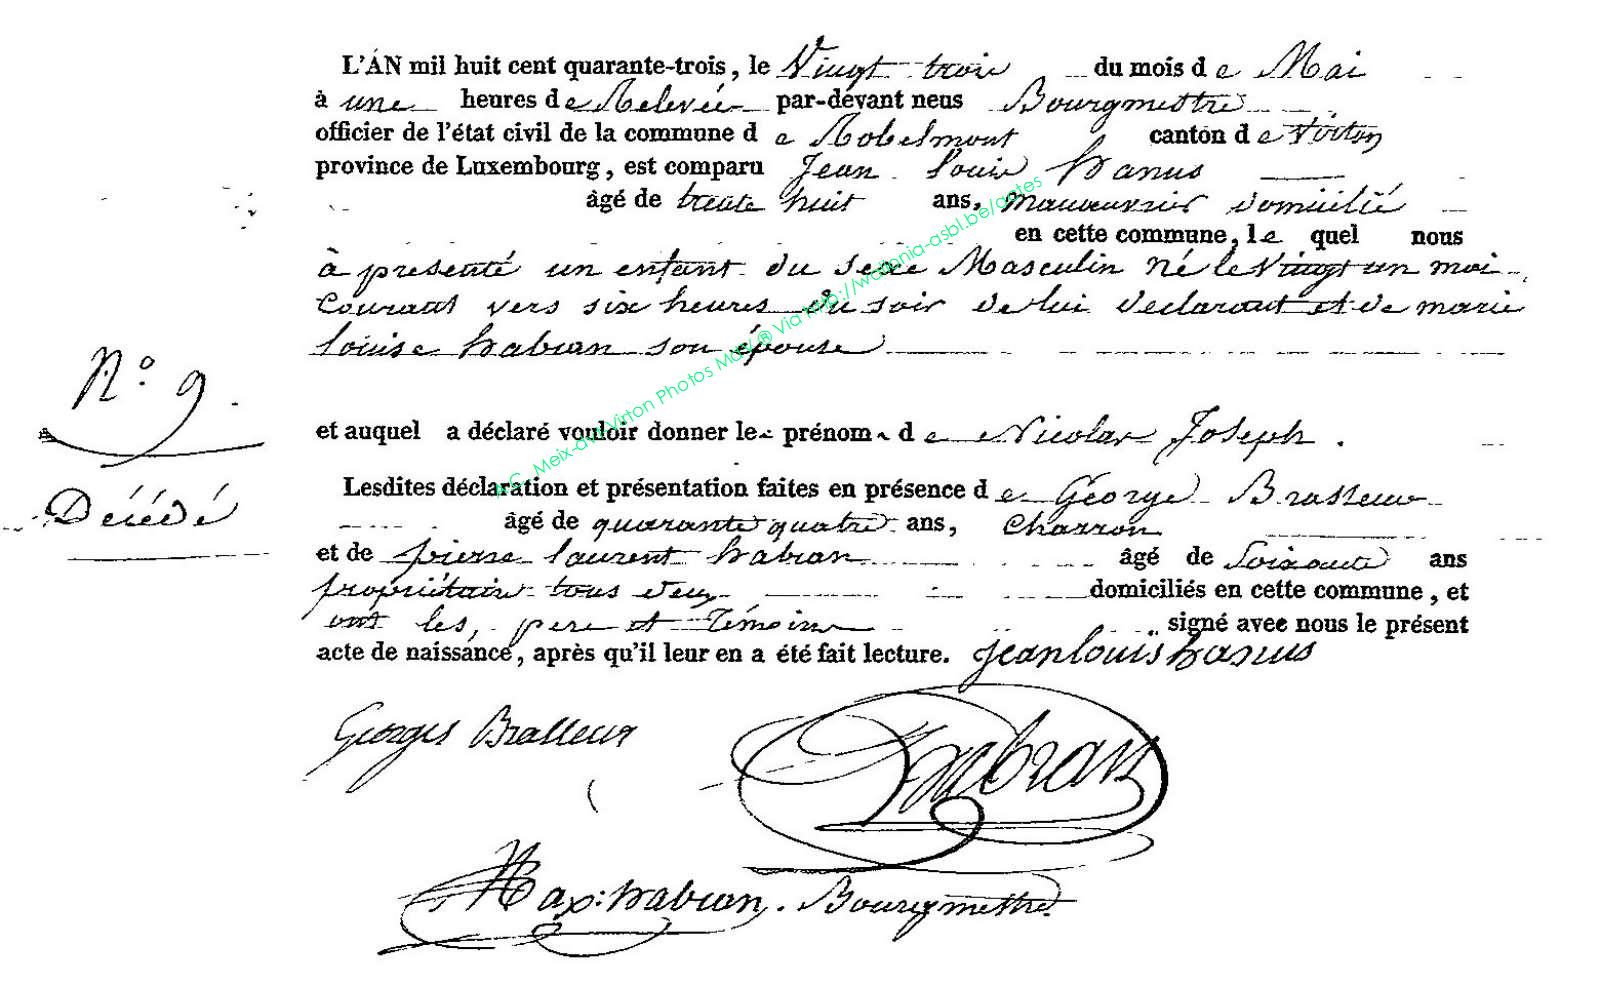 L'AN mil huit cent quarante-trois, le Vingt trois du mois de Mai
à une heures de Relevée par-devant nous Bourgmestre
officier de l'état civil de la commune de Robelmont canton de Virton
province de Luxembourg, est comparu Jean Louis hanus
âgé de trente huit ans, manœuvrier domicilié
en cette commune, le quel nous
à presenté un enfant du sexe Masculin né le Vingt un moi
Courant vers six heures du soir de lui declarant et de marie
louise habran son épouse
N.° 9.
et auquel a déclaré vouloir donner les prénoms de Nicolas Joseph.
Lesdites déclaration et présentation faites en présence de George Brasseur
Décédé
âgé de quarante quatre ans, Charron
et de pierre laurent habran âgé de Soixante ans
propriétaire tous deux domiciliés en cette commune, et
ont les, pere et Témoins signé avec nous le présent
acte de naissance, après qu'il leur en a été fait lecture. jean louis hanus
Georges Brasseur
habran
Max: habran. Bourgmestre.
A.C. Meix-dvt-Virton Photos MdTV ® Via http://wallonia-asbl.be/actes